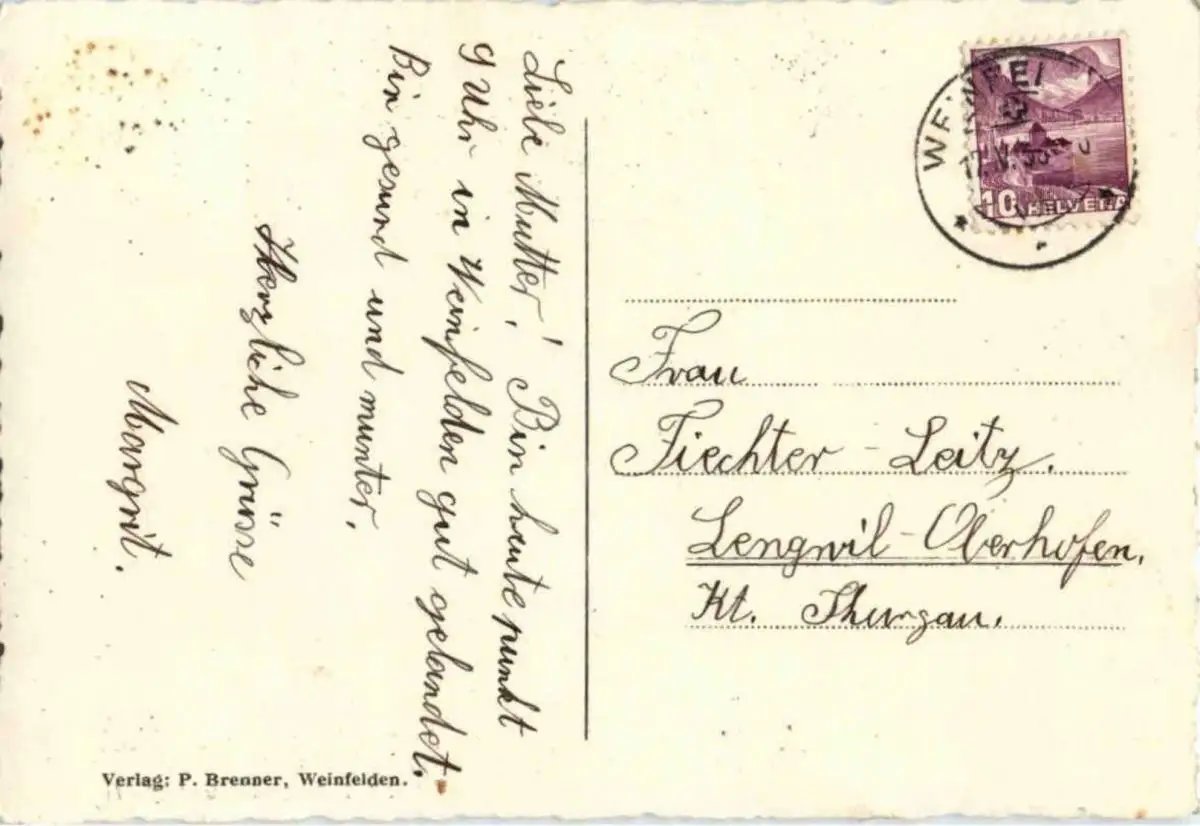 Liebe Mutter! Bin heute punkt
9 Uhr in Weinfelden gut gelandet.
Bin gesund und munter.
Herzliche Grüsse
Margrit.
Verlag: P. Brenner, Weinfelden.
10 HELVETIA
Frau
Fiechter-Leitz.
Lengwil-Oberhofen.
Kt. Thurgau.